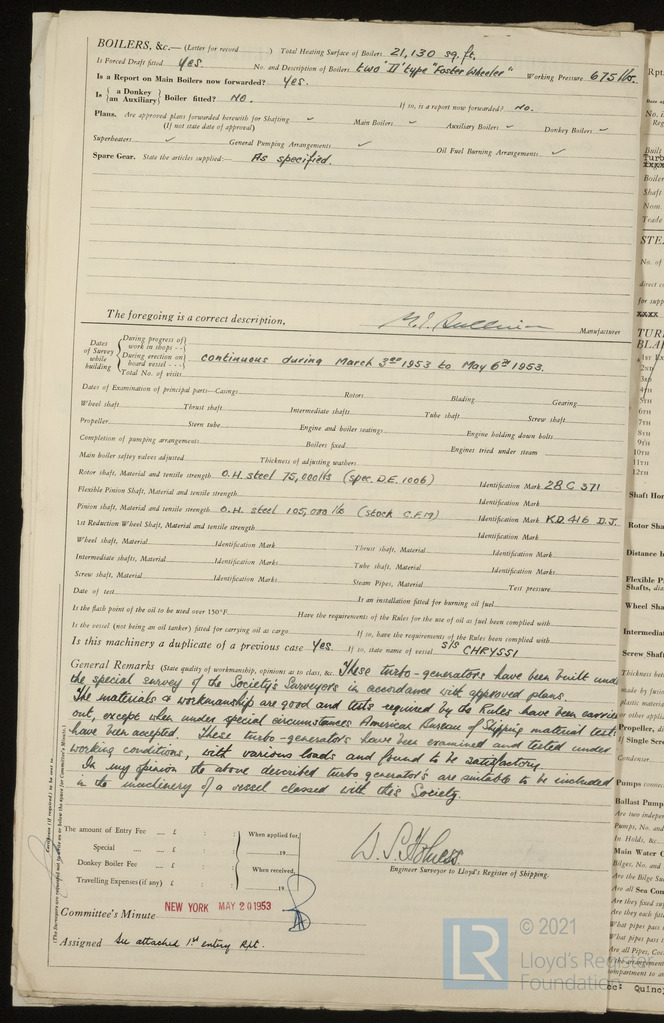 BOILERS, &c.— (Letter for record ) Total Heating Surface of Boilers 21,130 sq. ft.
Is Forced Draft fitted Yes. No. and Description of Boilers two 'D' type "Foster Wheeler" Working Pressure 675 lbs.
Is a Report on Main Boilers now forwarded? Yes.
Is { a Donkey an Auxiliary } Boiler fitted? No. If so, is a report now forwarded? No.
Plans. Are approved plans forwarded herewith for Shafting ✓ Main Boilers ✓ Auxiliary Boilers ✓ Donkey Boilers ✓
(If not state date of approval)
Superheaters ✓ General Pumping Arrangements ✓ Oil Fuel Burning Arrangements ✓
Spare Gear. State the articles supplied:— As specified.
The foregoing is a correct description,
Manufacturer
Dates of Survey while building
During progress of work in shops - -
During erection on board vessel - - -
Total No. of visits
continuous during March 3rd 1953 to May 6th 1953.
Dates of Examination of principal parts—Casings Rotors Blading Gearing
Wheel shaft Thrust shaft Intermediate shafts Tube shaft Screw shaft
Propeller Stern tube Engine and boiler seatings Engine holding down bolts
Completion of pumping arrangements Boilers fixed Engines tried under steam
Main boiler saftey valves adjusted Thickness of adjusting washers
Rotor shaft, Material and tensile strength O.H. steel 75,000 lbs (spec. D.E. 1006) Identification Mark 28C 371
Flexible Pinion Shaft, Material and tensile strength Identification Mark
Pinion shaft, Material and tensile strength O.H. steel 105,000 lb (stock C.F.19) Identification Mark K.D. 416 D.J.
1st Reduction Wheel Shaft, Material and tensile strength Identification Mark
Wheel shaft, Material Identification Mark Thrust shaft, Material Identification Mark
Intermediate shafts, Material Identification Marks Tube shaft, Material Identification Marks
Screw shaft, Material Identification Marks Steam Pipes, Material Test pressure
Date of test Is an installation fitted for burning oil fuel
Is the flash point of the oil to be used over 150°F. Have the requirements of the Rules for the use of oil as fuel been complied with
Is the vessel (not being an oil tanker) fitted for carrying oil as cargo If so, have the requirements of the Rules been complied with
Is this machinery a duplicate of a previous case Yes. If so, state name of vessel S/S CHRYSSI
General Remarks (State quality of workmanship, opinions as to class, &c. These turbo-generators have been built und
the special survey of the Society's Surveyors in accordance with approved plans.
The materials & workmanship are good and tests required by the Rules have been carried
out, except when under special circumstances American Bureau of Shipping material tests
have been accepted. These turbo-generators have been examined and tested under
working conditions, with various loads and found to be satisfactory.
In my opinion the above described turbo generators are suitable to be included
in the machinery of a vessel classed with this Society.
The amount of Entry Fee ... £ : : When applied for,
Special ... £ : : 19
Donkey Boiler Fee ... £ : : When received,
Travelling Expenses (if any) £ : : 19
Engineer Surveyor to Lloyd's Register of Shipping.
Committee's Minute NEW YORK MAY 20 1953
Assigned See attached 1st entry Rpt.
© 2021
Lloyd's Register
Foundation
LR